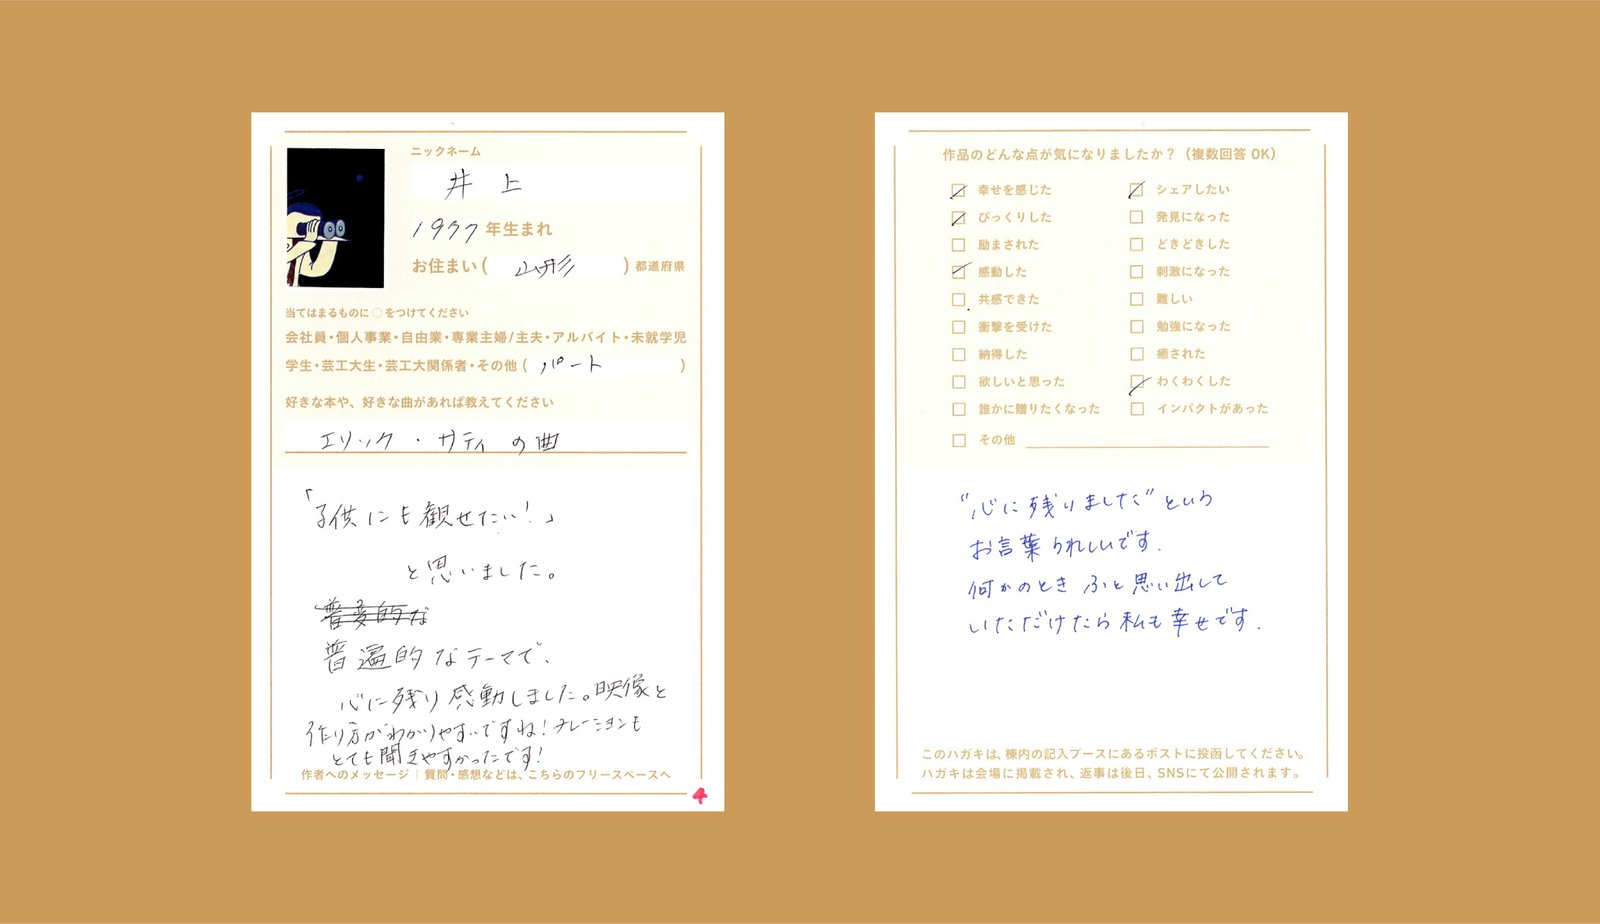 ニックネーム
井上
1977 年生まれ
お住まい ( 山形 ) 都道府県
当てはまるものに ○ をつけてください
会社員・個人事業・自由業・専業主婦/主夫・アルバイト・未就学児
学生・芸工大生・芸工大関係者・その他 ( パート )
好きな本や、好きな曲があれば教えてください
エリック・サティの曲
「子供にも観せたい!」
と思いました。
普遍的なテーマで、
心に残り感動しました。映像と
作り方がわかりやすいですね!ナレーションも
とても聞きやすかったです!
作者へのメッセージ | 質問・感想などは、こちらのフリースペースへ
4
作品のどんな点が気になりましたか?(複数回答 OK)
幸せを感じた
びっくりした
励まされた
感動した
共感できた
衝撃を受けた
納得した
欲しいと思った
誰かに贈りたくなった
その他
シェアしたい
発見になった
どきどきした
刺激になった
難しい
勉強になった
癒された
わくわくした
インパクトがあった
“心に残りました”という
お言葉うれしいです.
何かのとき ふと思い出して
いただけたら私も幸せです.
このハガキは、棟内の記入ブースにあるポストに投函してください。
ハガキは会場に掲載され、返事は後日、SNSにて公開されます。